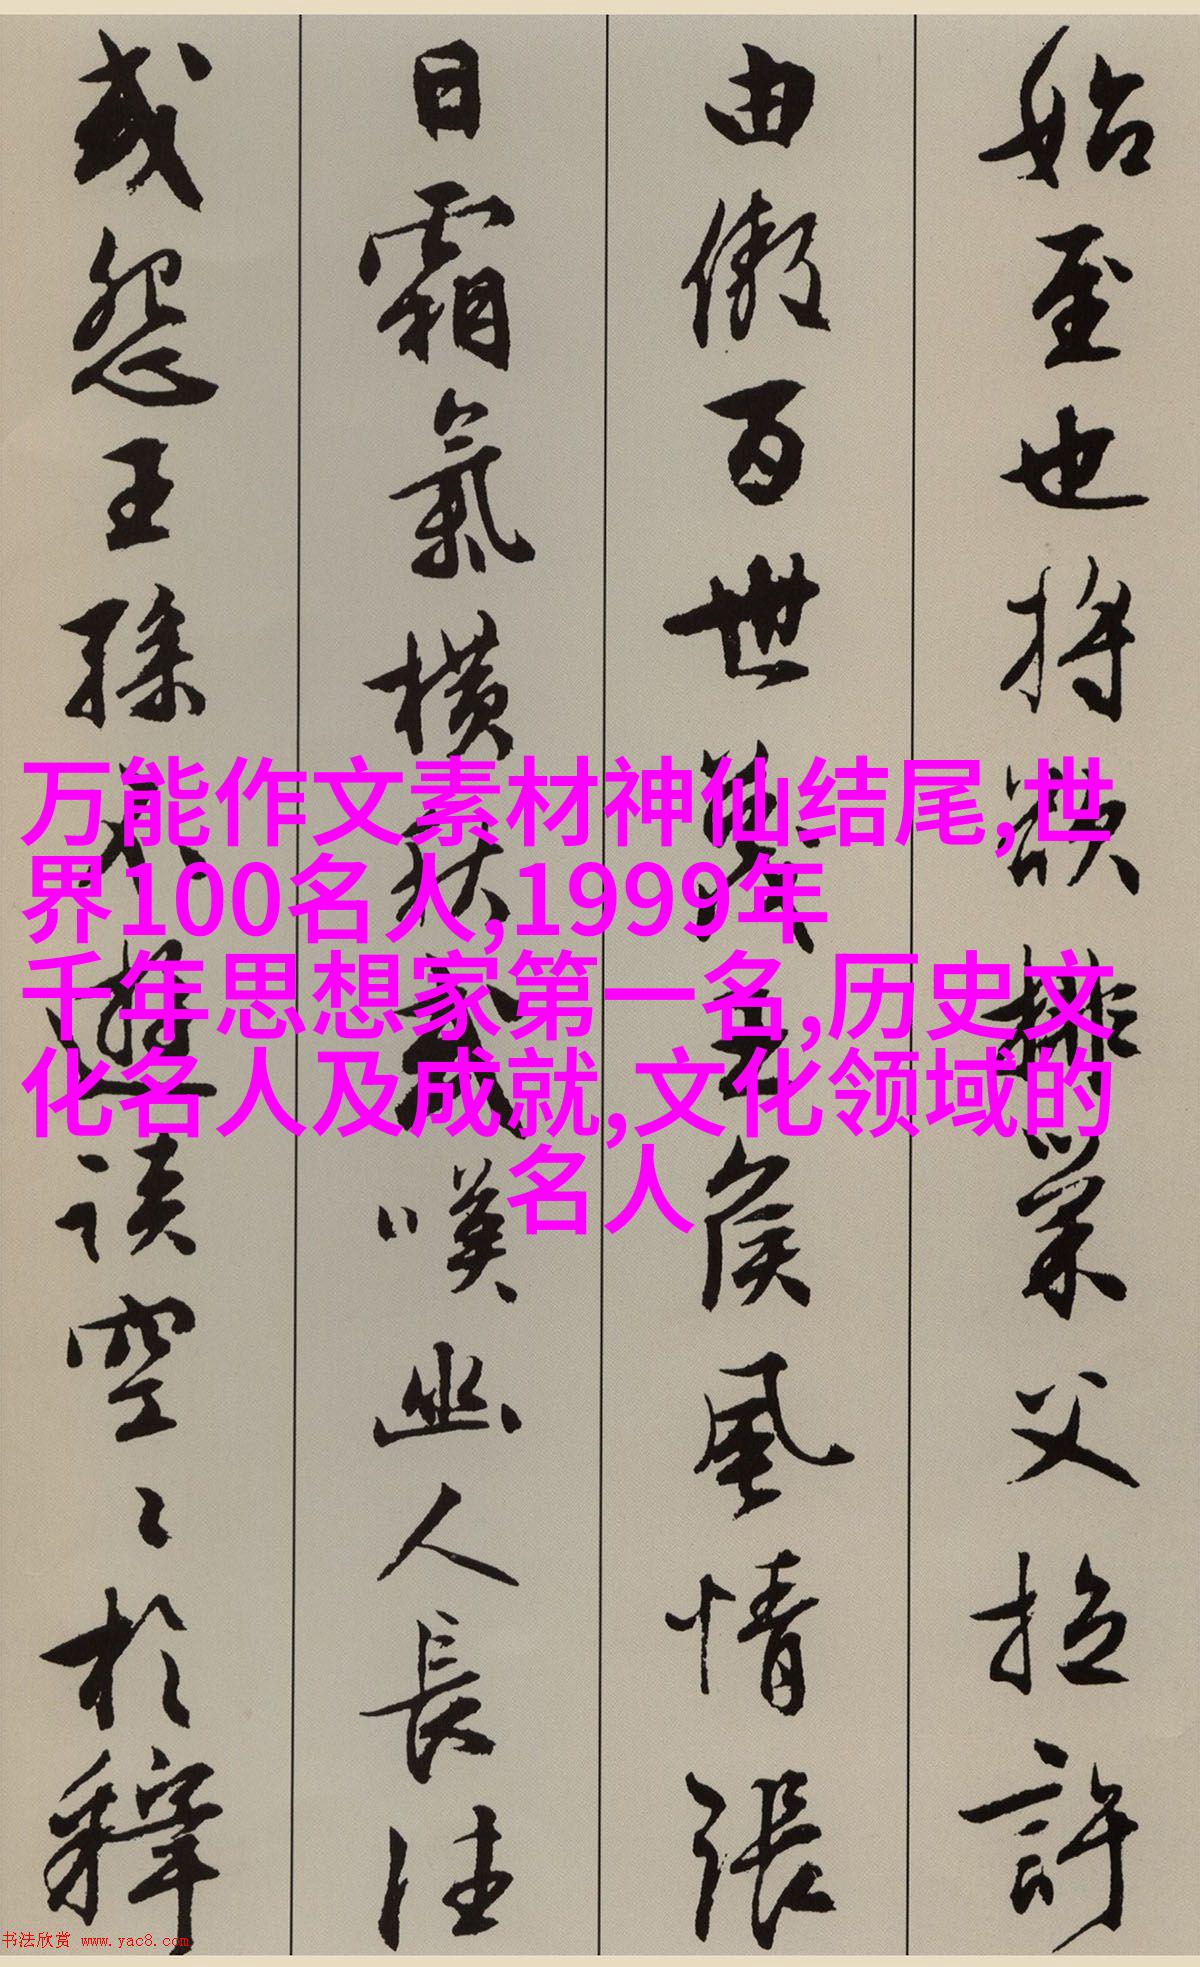 始至也将欲排巢父拉許
由傲百世蔑王侯風情張
日霜氣横秋或嘆幽人長往
或怨王孫不遊談空〻於釋
万能作文素材神仙结尾,世
界100名人,1999年
千年思想家第一名,历史文
化名人及成就,文化领域的
名人
书法欣赏 www.yac8.com